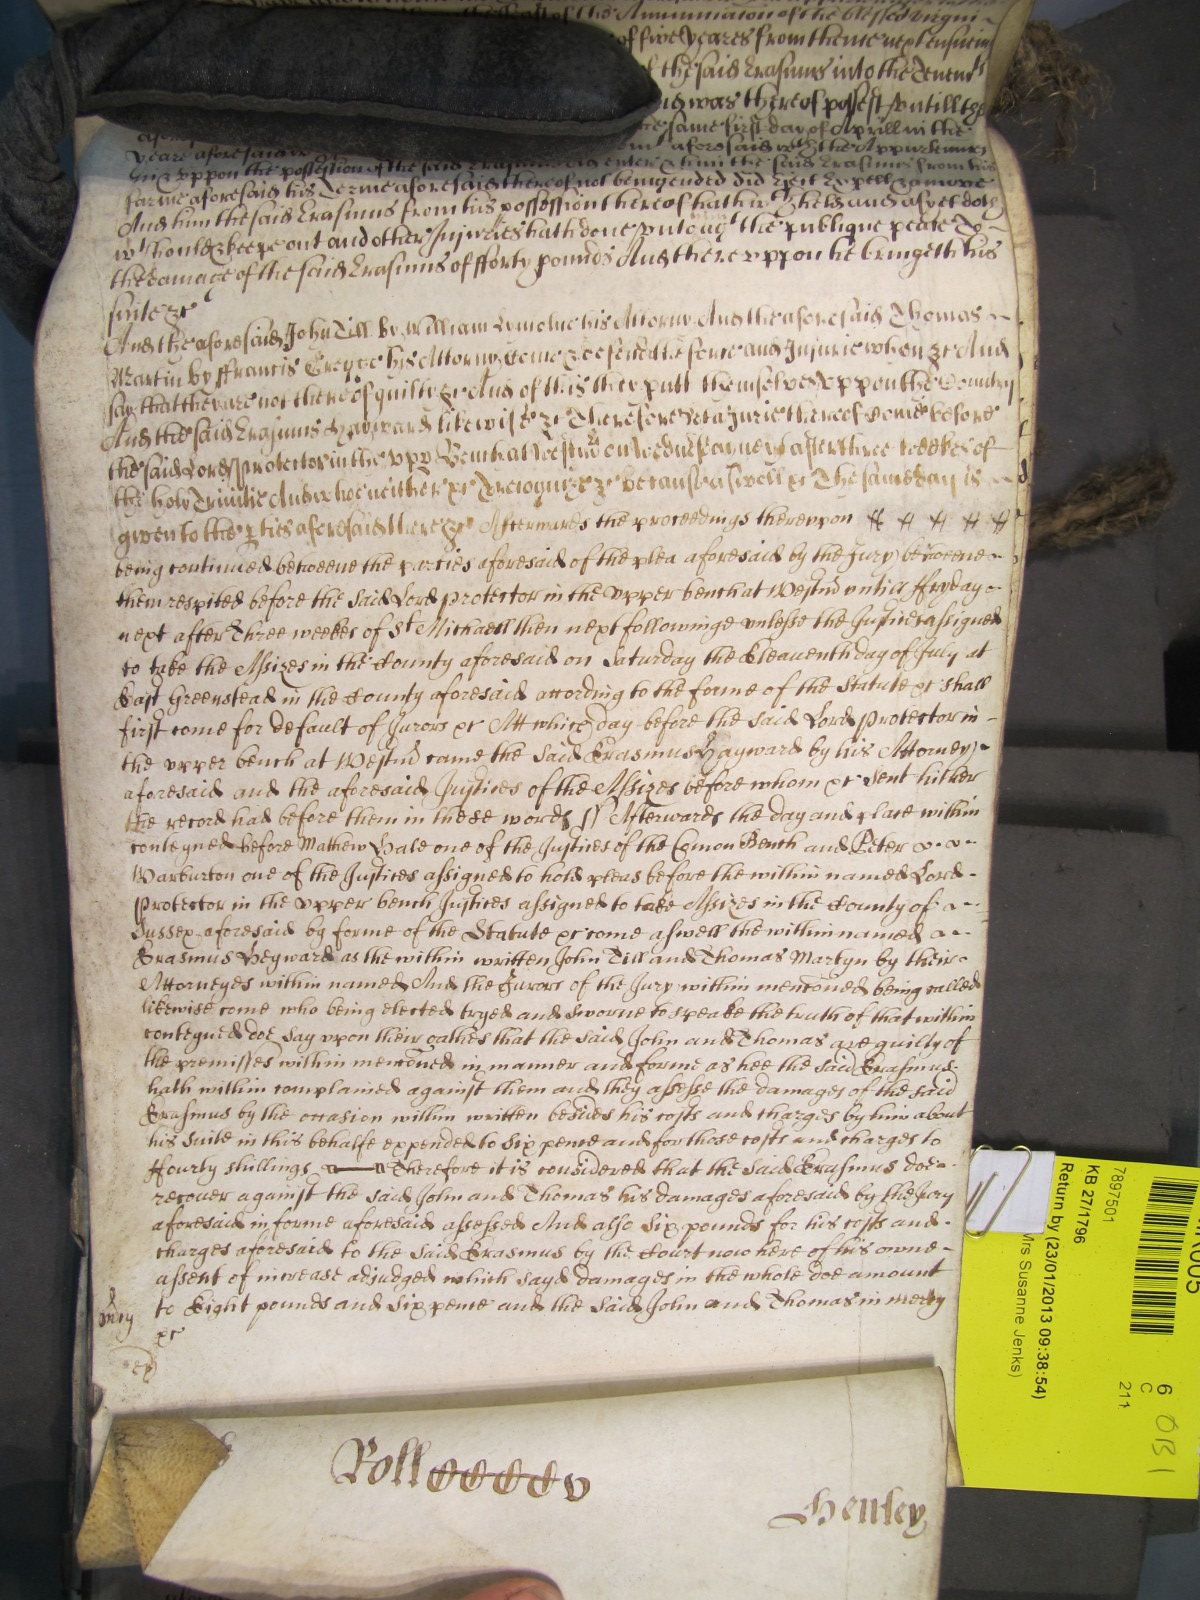 of the Annunciation of the blessed virgin
of five yeares from thence next ensuein
of the said Erasmus into the Tenemts
was thereof possest untill the
the same first day of Aprill in the
yeare aforesaid aforesaid wth the Appurtennces
uppon the possession of the said Erasmus did enter & him the said Erasmus from his
farme aforesaid his Terme aforesaid thereof not being ended did Eject Expell & amove
And him the said Erasmus from his possession thereof hath wthheld and as yet doth
wthhould & keepe out and other Injuries hath done unto him the publique peace To
the damage of the said Erasmus of fforty pounds And thereuppon he bringeth his
suite &c
And the aforesaid John Till by William his Attorny And the aforesaid Thomas
Martin by ffrancis his Attorny Come & defend the force and Injurie when &c And
say that they are not thereof guilty &c And of this they putt themselves uppon the Country
And the said Erasmus Hayward likewise &c Therefore let a Jurie thereof Come before
the said Lord Protector in the upp Bench at Westmr on Wednesday next after three weekes of
the holy Trinitie And who neither &c To recognize &c because aswell &c The same day is
given to the pties aforesaid there &c Afterwards the proceedings thereupon
being continued betweene the parties aforesaid of the plea aforesaid by the Jury betweene
them respited before the said Lord Protector in the upper bench at Westmr untill ffryday
next after Three weekes of St Michaell then next followinge unlesse the Justices assigned
to take the Assizes in the County aforesaid on Saturday the Eleaventh day of July at
East Greenstead in the County aforesaid according to the forme of the Statute &c shall
first come for default of Jurors &c Att which day before the said Lord Protector in
the upper bench at Westmr came the said Erasmus Hayward by his Attorney
aforesaid and the aforesaid Justices of the Assizes before whom &c sent hither
the record had before them in these words ss Afterwards the day and place within
conteyned before Mathew Hale one of the Justices of the Comon Bench and Peter
Warburton one of the Justices assigned to hold pleas before the within named Lord
Protector in the upper bench Justices assigned to take Assizes in the County of
Sussex aforesaid by forme of the Statute &c come aswell the within named
Erasmus Heyward as the within written John Till and Thomas Martyn by their
Attorneyes within named And the Jurors of the Jury within menconed being called
likewise come who being elected tryed and sworne to speake the truth of that within
conteyned doe say upon their oathes that the said John and Thomas are guilty of
the premisses within menconed in manner and forme as hee the said Erasmus
hath within complained against them and they assesse the damages of the said
Erasmus by the occasion within written besides his costs and charges by him about
his suite in this behalfe expended to six pence and for those costs and charges to
ffourty shillings Therefore it is considered that the said Erasmus doe
recover against the said John and Thomas his damages aforesaid by the Jury
aforesaid in forme aforesaid assessed And also six pounds for his costs and
charges aforesaid to the said Erasmus by the Court now here of his owne
assent of increase adjudged which sayd damages in the whole doe amount
to Eight pounds and six pence and the said John and Thomas in mercy
&c
mcy
Roll
Henley
7897501
KB 27/1796
Return by (23/01/2013 09:38:54)
Mrs Susanne Jenks)
6
C
211
OB1